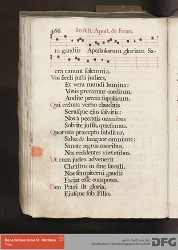 166 In festi. Apost. & Evan.
ra gaudiis Apostolorum gloriam Sa-
cra canunt solemnia.
Vos sæcli justi judices,
Et vera mundi lumina:
Votis precamur cordium,
Audite preces supplicum.
Qui cœlum verbo clauditis
Serasque ejus solvitis:
Nos a peccatis omnibus
Solvite jussu, quæsumus.
Quorum præcepto subditur,
Salus & languor omnium:
Sanate ægros moribus,
Nos reddentes virtutibus.
Ut cum judex advenerit
Christus in fine sæculi,
Nos sempiterni gaudii
Faciat esse compotes.
Deo Patri sit gloria,
Ejusque soli Filio,
Benediktinerabtei St. Matthias
Trier
DFG